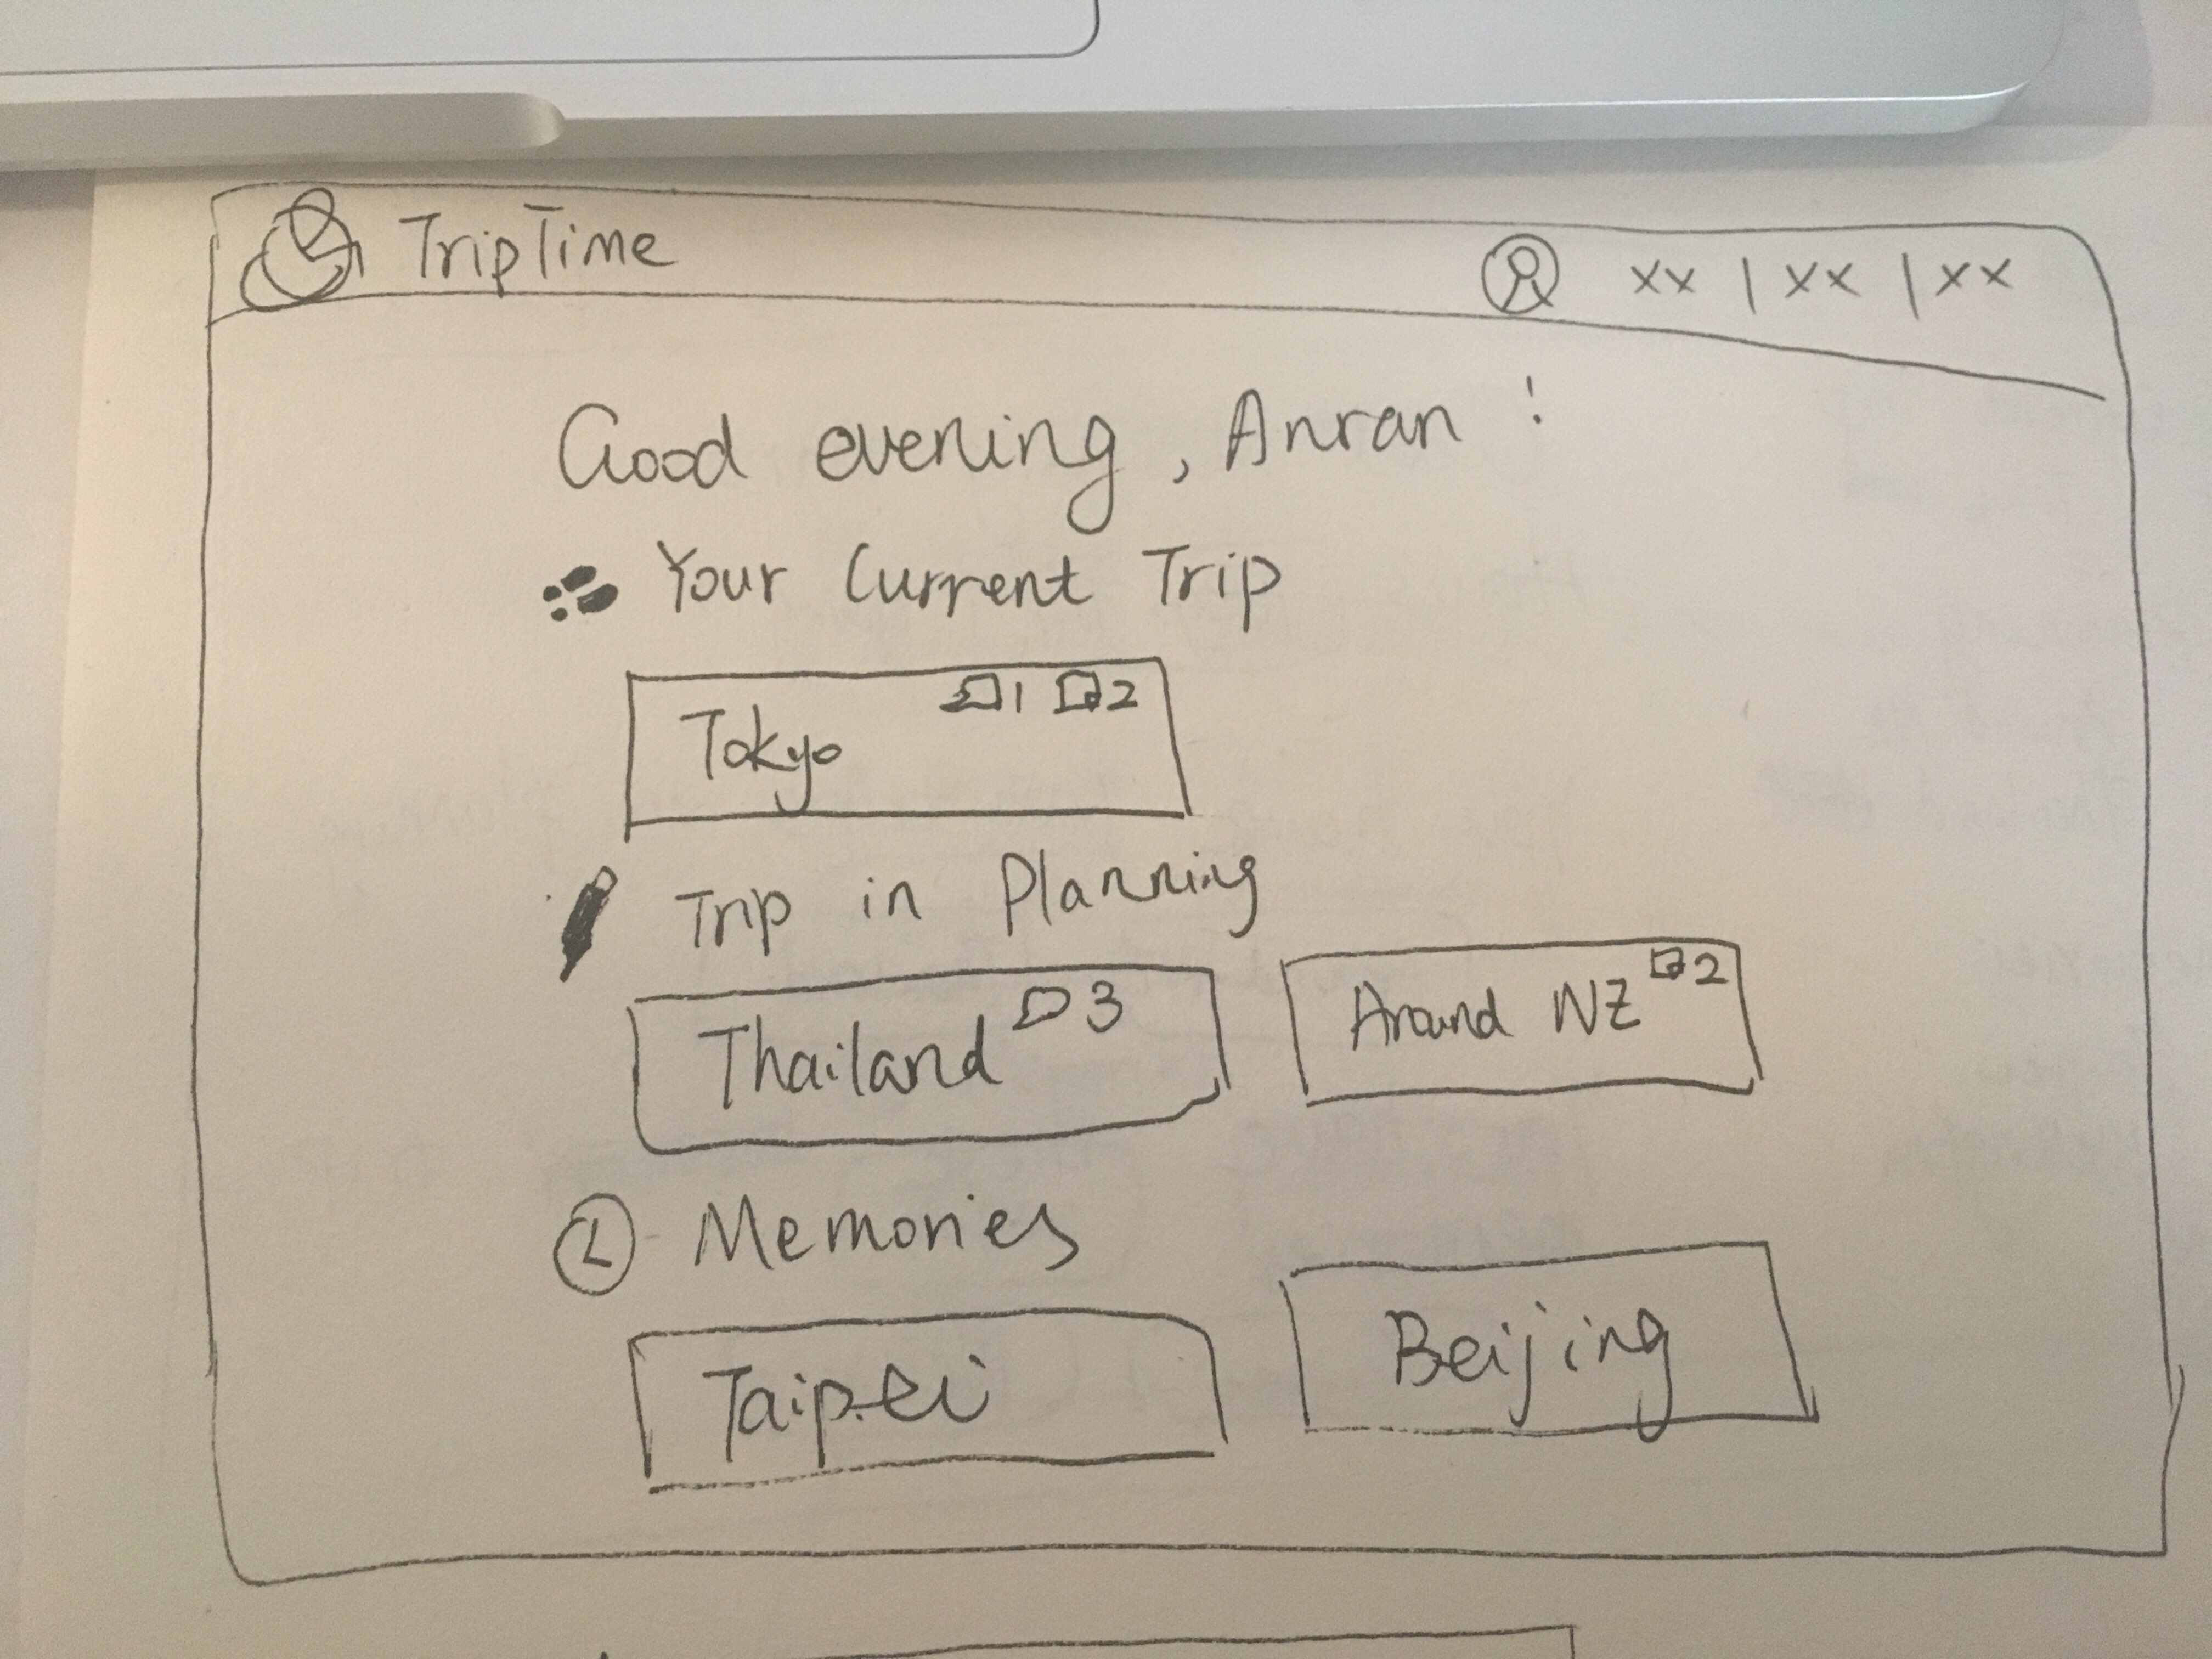 TripTime xx | xx | xx
Good evening, Anran!
Your Current Trip
1 2
Tokyo
Trip in Planning
Thailand 3 Around NZ 2
Memories
Taipei Beijing